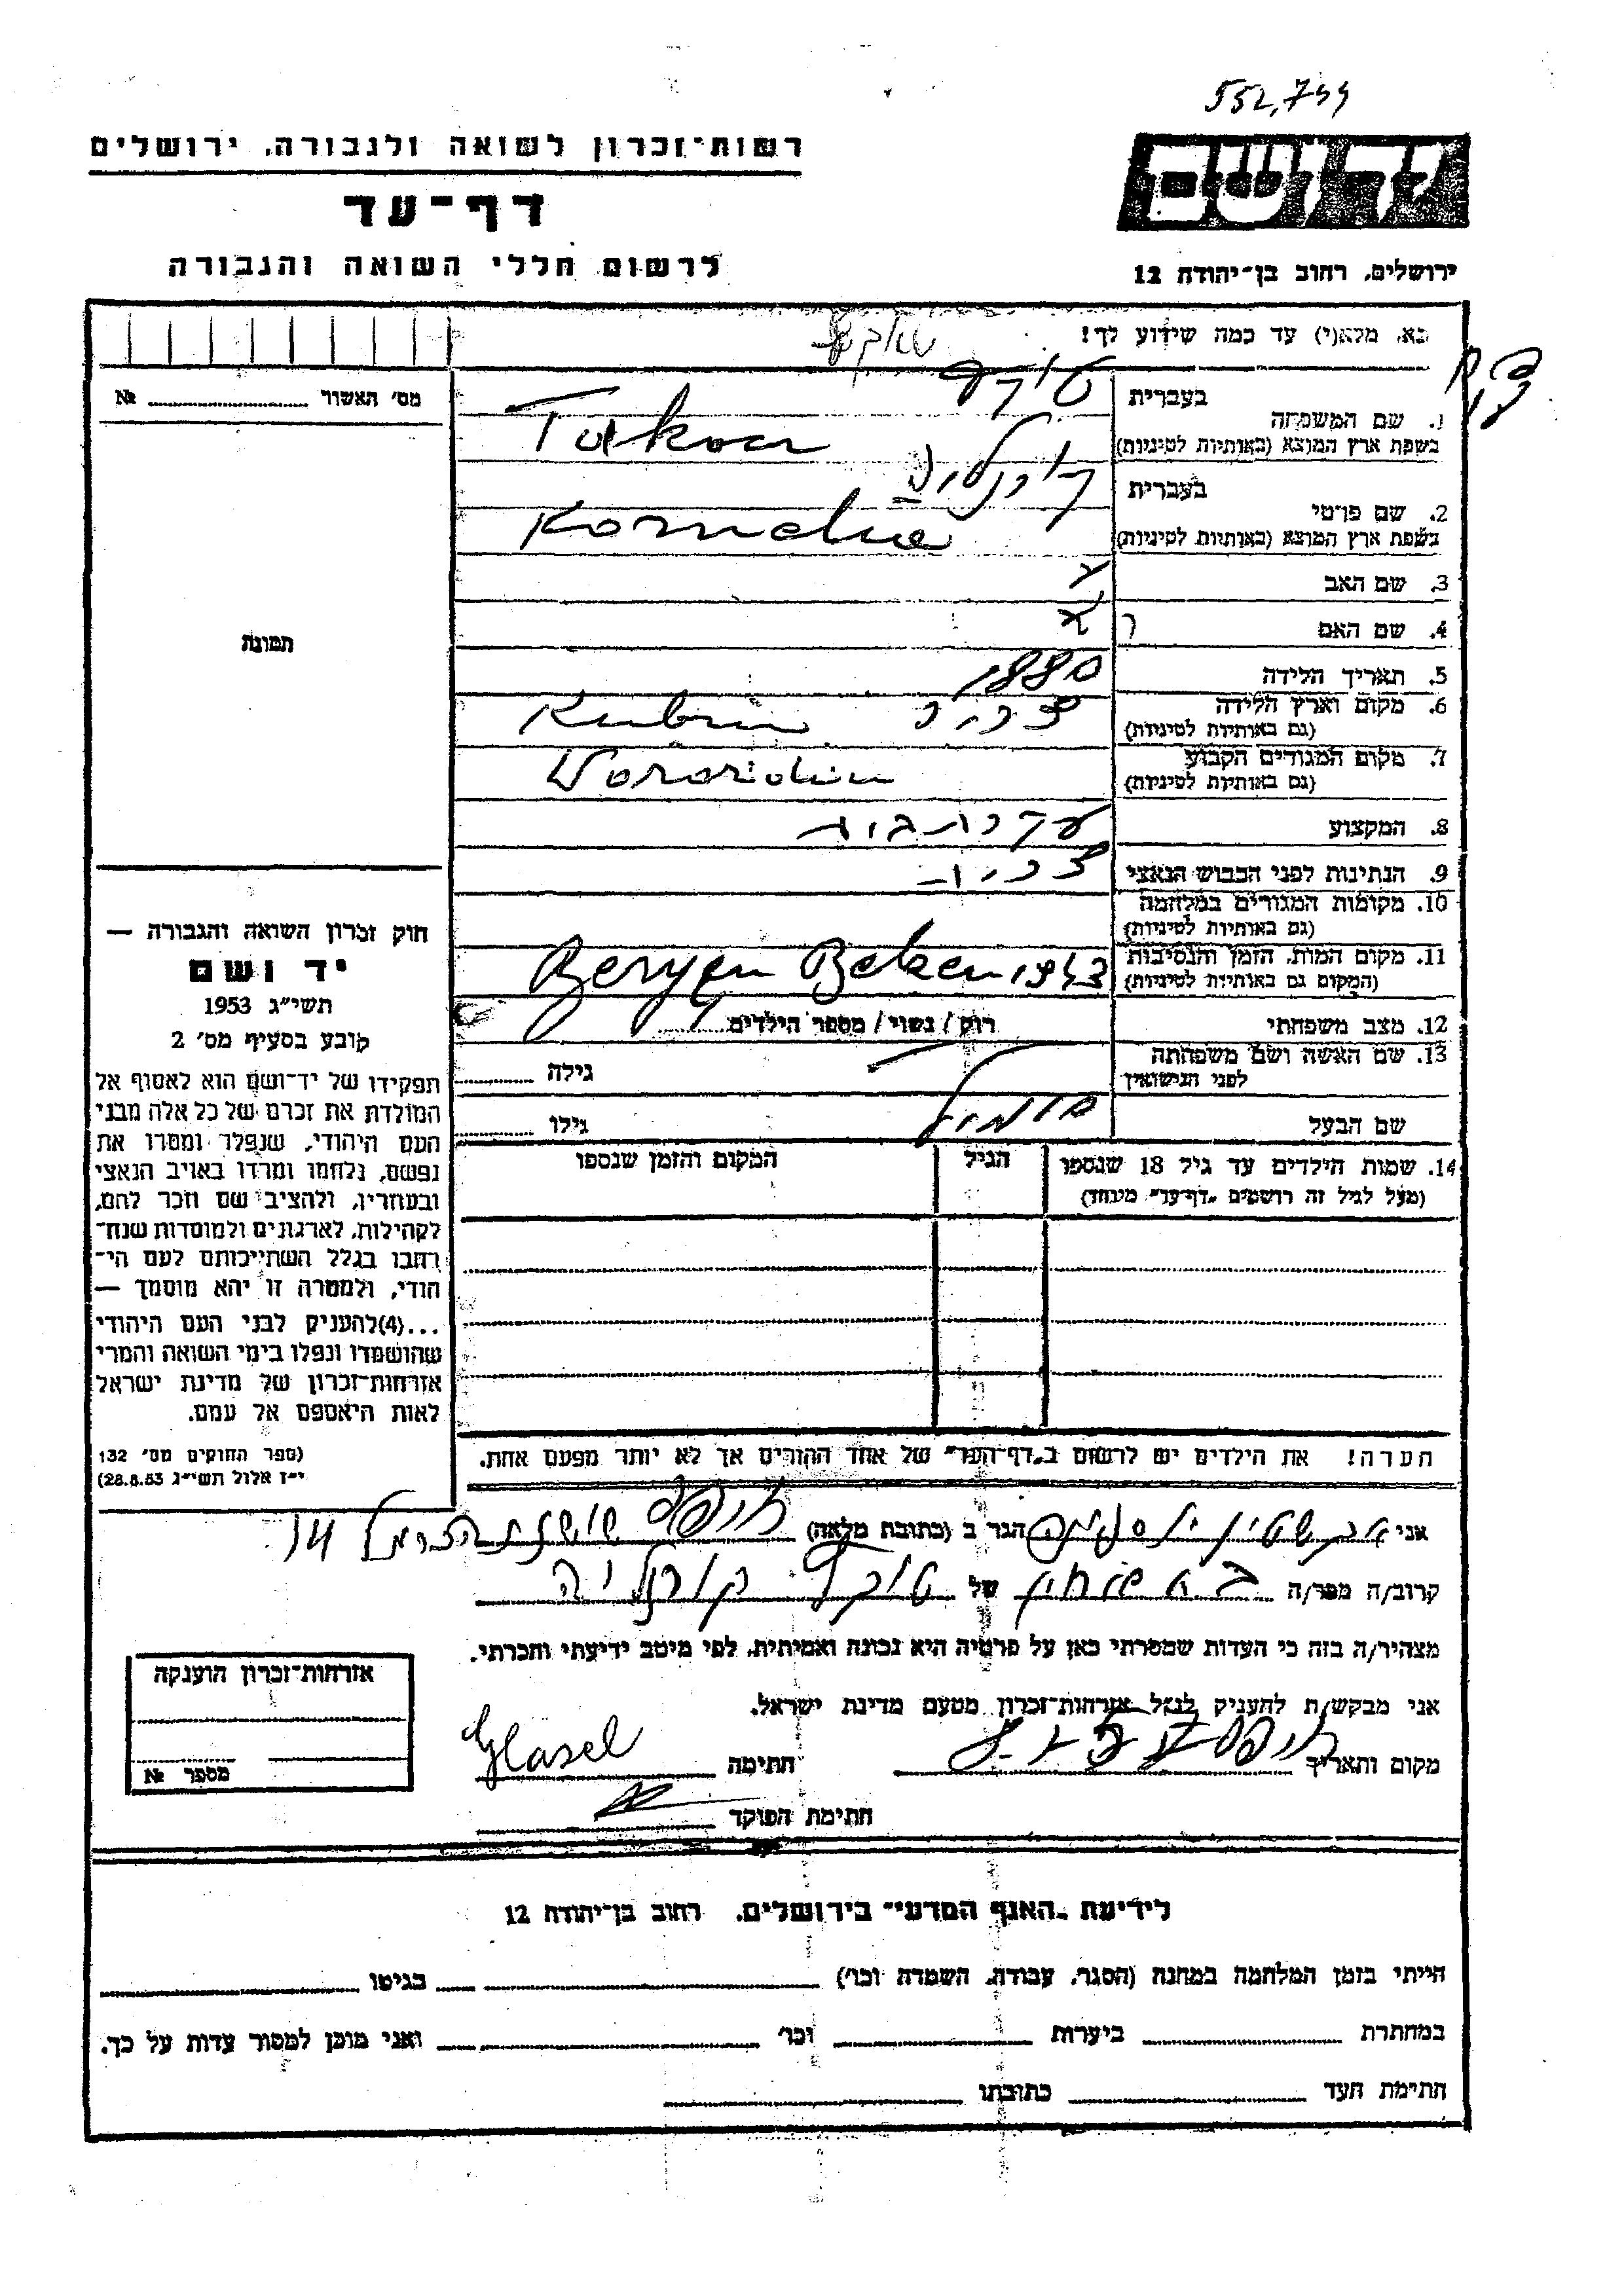 552,744
רשות-זכרון לשואה ולגבורה, ירושלים
דף-עד
לרשום חללי השואה והגבורה
ירושלים, רחוב בן-יהודה 12
נא, מלא(י) עד כמה שידוע לך!
מס' האשור № 
בעברית
1. שם המשפחה
בשפת ארץ המוצא (באותיות לטיניות)
בעברית קורנליה
2. שם פרטי
בשפת ארץ המוצא (באותיות לטיניות) Kornelia
3. שם האב
4. שם האם
5. תאריך הלידה 1880
6. מקום וארץ הלידה
(גם באותיות לטיניות)
7. מקום המגורים הקבוע
(גם באותיות לטיניות)
8. המקצוע עקרת בית
9. הנתינות לפני הכבוש הנאצי
10. מקומות המגורים במלחמה
(גם באותיות לטיניות)
11. מקום המות, הזמן והנסיבות Bergen Belsen 1943
(המקום גם באותיות לטיניות)
12. מצב משפחתי רוק / נשוי / מספר הילדים
13. שם האשה ושם משפחתה
לפני הנישואין
גילה
שם הבעל
גילו
14. שמות הילדים עד גיל 18 שנספו
(מעל לגיל זה רושמים "דף-עד" מיוחד)
הגיל
המקום והזמן שנספו
הערה! את הילדים יש לרשום ב"דף-העד" של אחד ההורים אך לא יותר מפעם אחת.
תמונה
חוק זכרון השואה והגבורה —
יד ושם
תשי"ג 1953
קובע בסעיף מס' 2
תפקידו של יד-ושם הוא לאסוף אל
המולדת את זכרם של כל אלה מבני
העם היהודי, שנפלו ומסרו את
נפשם, נלחמו ומרדו באויב הנאצי
ובעוזריו, ולהציב שם וזכר להם,
לקהילות, לארגונים ולמוסדות שנח-
רבו בגלל השתייכותם לעם הי-
הודי, ולמטרה זו יהא מוסמך —
...(4)להעניק לבני העם היהודי
שהושמדו ונפלו בימי השואה והמרי
אזרחות-זכרון של מדינת ישראל
לאות היאספם אל עמם.
(ספר החוקים מס' 132
י"ז אלול תשי"ג 28.8.53)
אני הגר ב (כתובת מלאה) חיפה 14
קרוב/ה מכר/ה של קורנליה
מצהיר/ה בזה כי העדות שמסרתי כאן על פרטיה היא נכונה ואמיתית, לפי מיטב ידיעתי והכרתי.
אני מבקש/ת להעניק לנ"ל אזרחות-זכרון מטעם מדינת ישראל.
מקום ותאריך חיפה חתימה Glasel
חתימת הפוקד
אזרחות-זכרון הוענקה
מספר №
לידיעת "האגף המדעי" בירושלים, רחוב בן-יהודה 12
הייתי בזמן המלחמה במחנה (הסגר, עבודה, השמדה וכו') בגיטו
במחתרת ביערות וכו' ואני מוכן למסור עדות על כך.
חתימת העד כתובתו